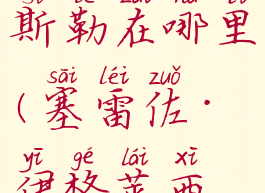 斯勒在哪里
sāi léi zuǒ
(塞雷佐·
yī gé lái xī
伊格莱西